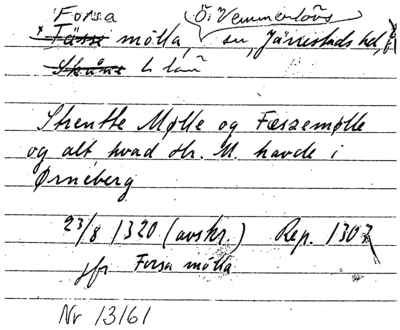 Forsa Ö. Vemmerlövs
* Fässe mölla, sn, Järrestads hd,
Skåne L län
Strentte Mølle og Fæszemølle
og alt hvad Hr. M. havde i
Ørneberg
23/8 1320 (avskr.) Rep. 1307
jfr Forsa mölla
Nr 13161